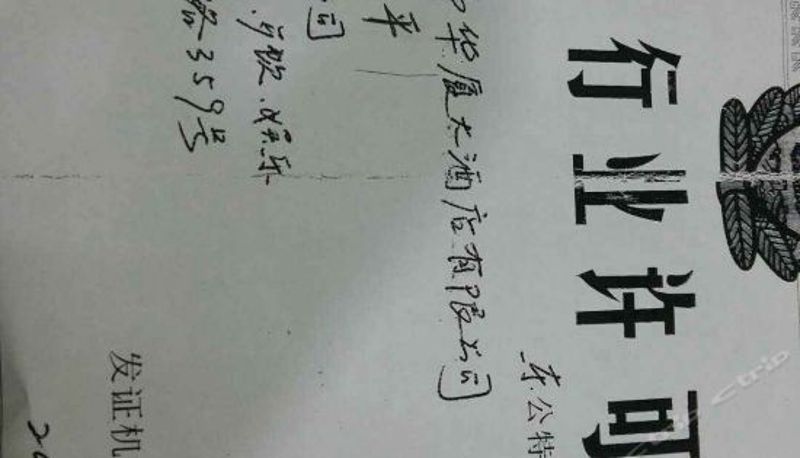 行业许可
东公特
华厦大酒店有限公司
平
司
歌.娱乐
路359号
发证机
20
ctrip